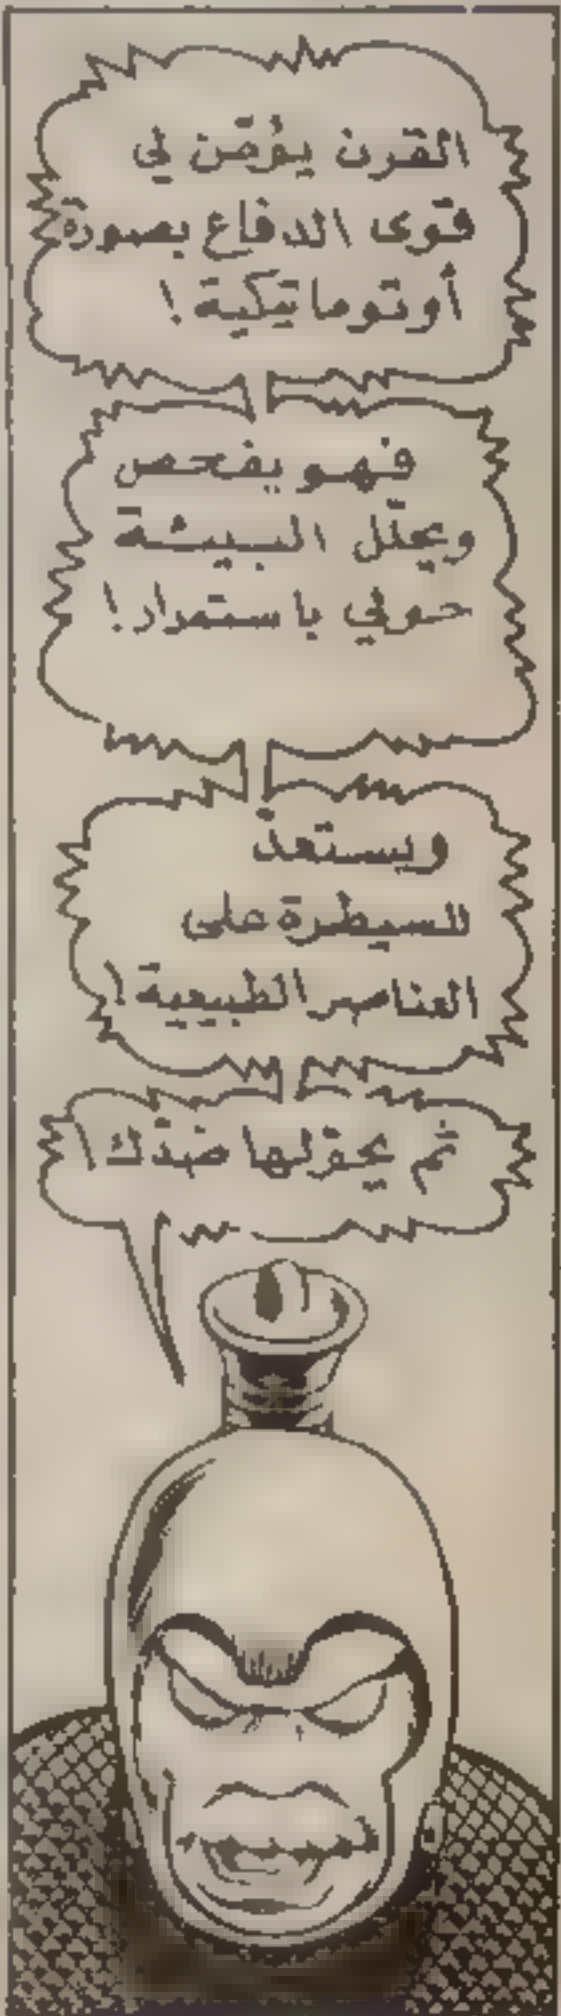 القرن يؤمّن لي
قوى الدفاع بصورة
أوتوماتيكية!
فهو يفحص
ويحلّل البيئة
حولي باستمرار!
ويستعدّ
للسيطرة على
العناصر الطبيعية!
ثم يحوّلها ضدّك!